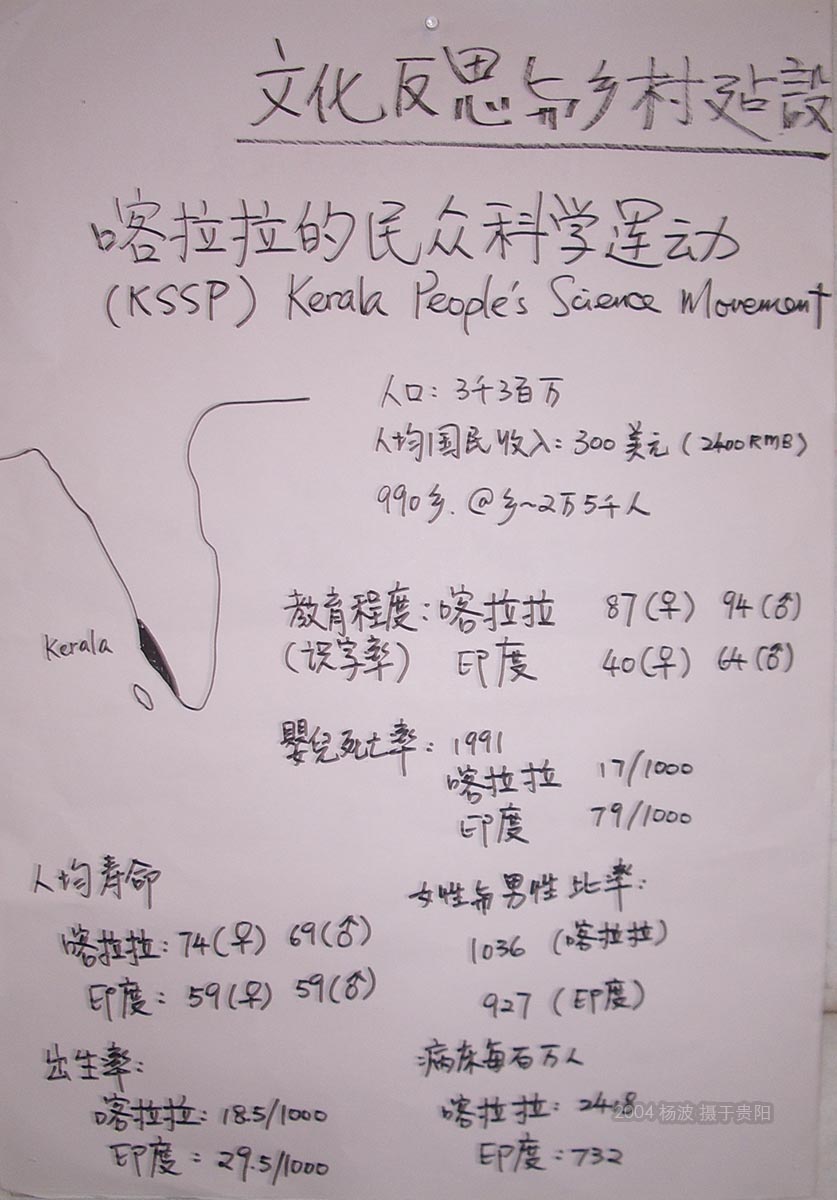 文化反思与乡村建設
喀拉拉的民众科学運动
(KSSP) Kerala People's Science Movement
人口: 3千3百万
人均国民收入: 300美元 (2400RMB)
990乡. @乡~2万5千人
Kerala
教育程度: 喀拉拉 87(♀) 94(♂)
(识字率) 印度 40(♀) 64(♂)
嬰兒死亡率: 1991
喀拉拉 17/1000
印度 79/1000
人均寿命
喀拉拉: 74(♀) 69(♂)
印度: 59(♀) 59(♂)
女性与男性比率:
1036 (喀拉拉)
927 (印度)
出生率:
喀拉拉: 18.5/1000
印度: 29.5/1000
病床每百万人
喀拉拉:
印度: 732
2004 杨波 摄于贵阳